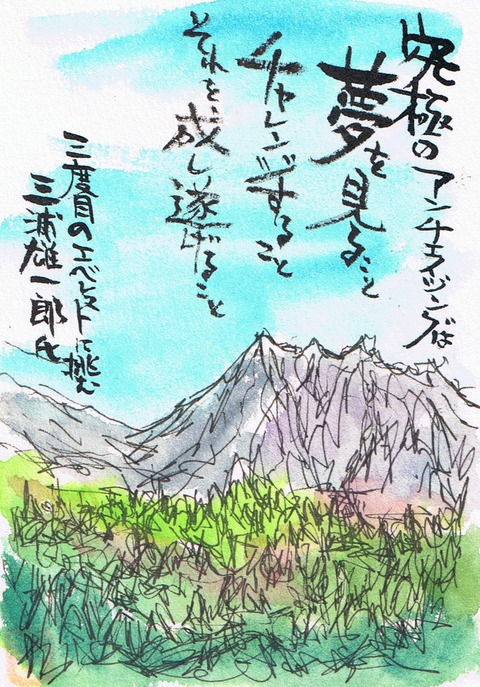 究極のアンチエイジングは
夢を見ること
チャレンジすること
それを、成し遂げること
三度目のエベレストに挑む
三浦雄一郎氏